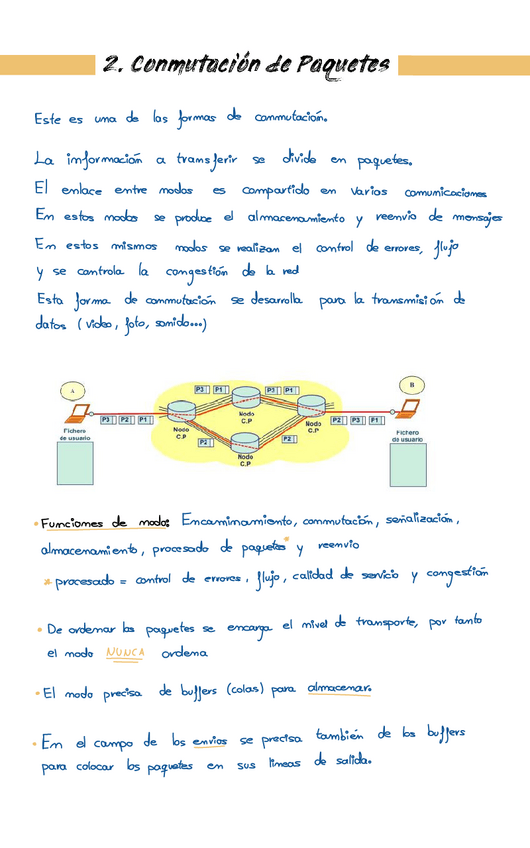 2. Conmutación de Paquetes
Este es una de las formas de conmutación.
La información a transferir se divide en paquetes.
El enlace entre nodos es compartido en varios comunicaciones
En estos nodos se produce el almacenamiento y reenvío de mensajes
En estos mismos nodos se realizan el control de errores, flujo
y se controla la congestión de la red
Esta forma de conmutación se desarrolla para la transmisión de
datos (video, foto, sonido...)
A
B
P3 P1
P3 P1
P3 P2 P1
Nodo C.P
Nodo C.P
Nodo C.P
P2 P3 P1
Fichero de usuario
P2
P2
Nodo C.P
Fichero de usuario
• Funciones de nodo: Encaminamiento, conmutación, señalización,
almacenamiento, procesado de paquetes* y reenvio
* procesado = control de errores, flujo, calidad de servicio y congestión
• De ordenar los paquetes se encarga el nivel de transporte, por tanto
el nodo NUNCA ordena
• El nodo precisa de buffers (colas) para almacenar.
• En el campo de los envios se precisa también de los buffers
para colocar los paquetes en sus líneas de salida.